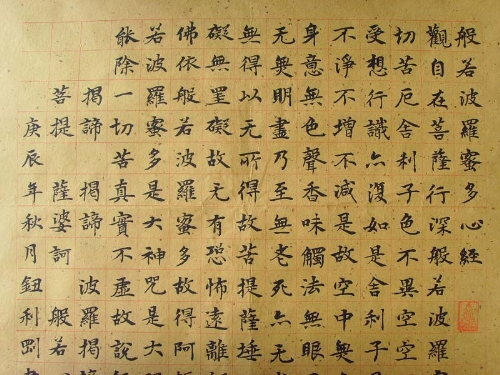 般若波羅蜜多心經
觀自在菩薩行深般若波羅
切苦厄舍利子色不異空空
受想行識亦復如是舍利子
不淨不增不減是故空中無
身意無色聲香味觸法無眼
无無明盡乃至無老死亦无
無得以无所得故菩提薩埵
礙無罣礙故无有恐怖遠離
佛依般若波羅蜜多故得阿
若波羅蜜多是大神咒是大
能除一切苦真實不虛故說
揭諦 揭諦 波羅揭諦
菩提 薩婆訶 般若
庚辰年秋月鈕利剛